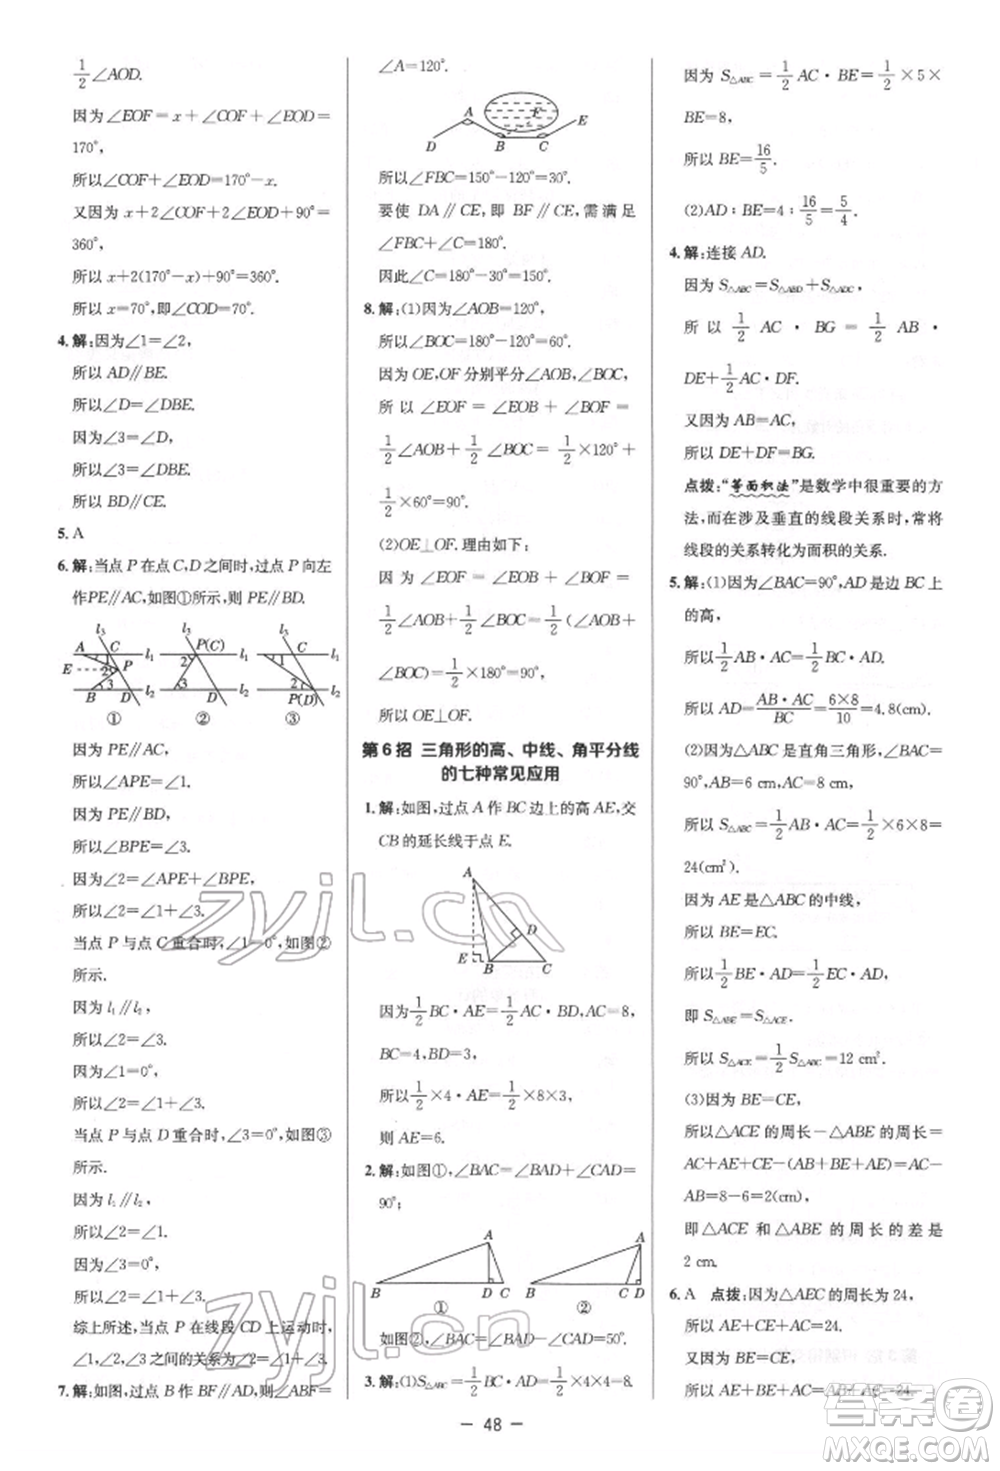 1/2∠AOD.
因为∠EOF=x+∠COF+∠EOD=
170°,
所以∠COF+∠EOD=170°-x.
又因为 x+2∠COF+2∠EOD+90°=
360°,
所以 x+2(170°-x)+90°=360°.
所以 x=70°,即∠COD=70°.
4. 解:因为∠1=∠2,
所以 AD∥BE.
所以∠D=∠DBE.
因为∠3=∠D,
所以∠3=∠DBE.
所以 BD∥CE.
5. A
6. 解:当点 P 在点 C,D 之间时,过点 P 向左
作PE∥AC,如图①所示,则 PE∥BD.
l₃ l₃ l₃
A C l₁ P(C) l₁ C l₁
E 2 P
B D l₂ D l₂ P(D) l₂
① ② ③
因为 PE∥AC,
所以∠1=∠APE.
因为 PE∥BD,
所以∠BPE=∠3.
因为∠2=∠APE+∠BPE,
所以∠2=∠1+∠3.
当点 P 与点 C 重合时,∠1=0°,如图②
所示.
因为 l₁∥l₂,
所以∠2=∠3.
因为∠1=0°,
所以∠2=∠1+∠3.
当点 P 与点 D 重合时,∠3=0°,如图③
所示.
因为 l₁∥l₂,
所以∠2=∠1.
因为∠3=0°,
所以∠2=∠1+∠3.
综上所述,当点 P 在线段 CD 上运动时,
∠1,∠2,∠3 之间的关系为∠2=∠1+∠3.
7. 解:如图,过点 B 作 BF∥AD,则∠ABF=
∠A=120°.
A F E
D B C
所以∠FBC=150°-120°=30°.
要使 DA∥CE,即 BF∥CE,需满足
∠FBC+∠C=180°.
因此∠C=180°-30°=150°.
8. 解:(1)因为∠AOB=120°,
所以∠BOC=180°-120°=60°.
因为 OE,OF 分别平分∠AOB,∠BOC,
所以∠EOF=∠EOB+∠BOF=
1/2∠AOB+1/2∠BOC=1/2×120°+
1/2×60°=90°.
(2)OE⊥OF. 理由如下:
因为∠EOF=∠EOB+∠BOF=
1/2∠AOB+1/2∠BOC=1/2(∠AOB
+∠BOC)=1/2×180°=90°,
所以 OE⊥OF.
第 6 招 三角形的高、中线、角平分线
的七种常见应用
1. 解:如图,过点 A 作 BC 边上的高 AE,交
CB 的延长线于点 E.
A
D
E B C
因为1/2BC·AE=1/2AC·BD,AC=8,
BC=4,BD=3,
所以1/2×4·AE=1/2×8×3,
则 AE=6.
2. 解:如图①,∠BAC=∠BAD+∠CAD=
90°;
A A
B D C B C D
① ②
如图②,∠BAC=∠BAD-∠CAD=50°.
3. 解:(1)S△ABC=1/2BC·AD=1/2×4×4=8.
因为 S△ABC=1/2AC·BE=1/2×5×
BE=8,
所以 BE=16/5.
(2)AD:BE=4:16/5=5/4.
4. 解:连接 AD.
因为 S△ABC=S△ABD+S△ADC,
所以 1/2 AC·BG=1/2 AB·
DE+1/2AC·DF.
又因为 AB=AC,
所以 DE+DF=BG.
点拨:“等面积法”是数学中很重要的方
法,而在涉及垂直的线段关系时,常将
线段的关系转化为面积的关系.
5. 解:(1)因为∠BAC=90°,AD是边 BC 上
的高,
所以1/2AB·AC=1/2BC·AD.
所以 AD=AB·AC/BC=6×8/10=4.8(cm).
(2)因为△ABC 是直角三角形,∠BAC=
90°,AB=6 cm,AC=8 cm,
所以 S△ABC=1/2AB·AC=1/2×6×8=
24(cm²).
因为 AE 是△ABC 的中线,
所以 BE=EC.
所以1/2BE·AD=1/2EC·AD,
即 S△ABE=S△ACE.
所以 S△ACE=1/2S△ABC=12 cm².
(3)因为 BE=CE,
所以△ACE 的周长-△ABE 的周长=
AC+AE+CE-(AB+AE+BE)=AC-
AB=8-6=2(cm),
即△ACE 和△ABE 的周长的差是
2 cm.
6. A 点拨:因为△AEC 的周长为 24,
所以 AE+CE+AC=24.
又因为 BE=CE,
所以 AE+BE+AC=24.
— 48 —
zyjl.cn
zyjl.cn
答案圈
MXQE.COM